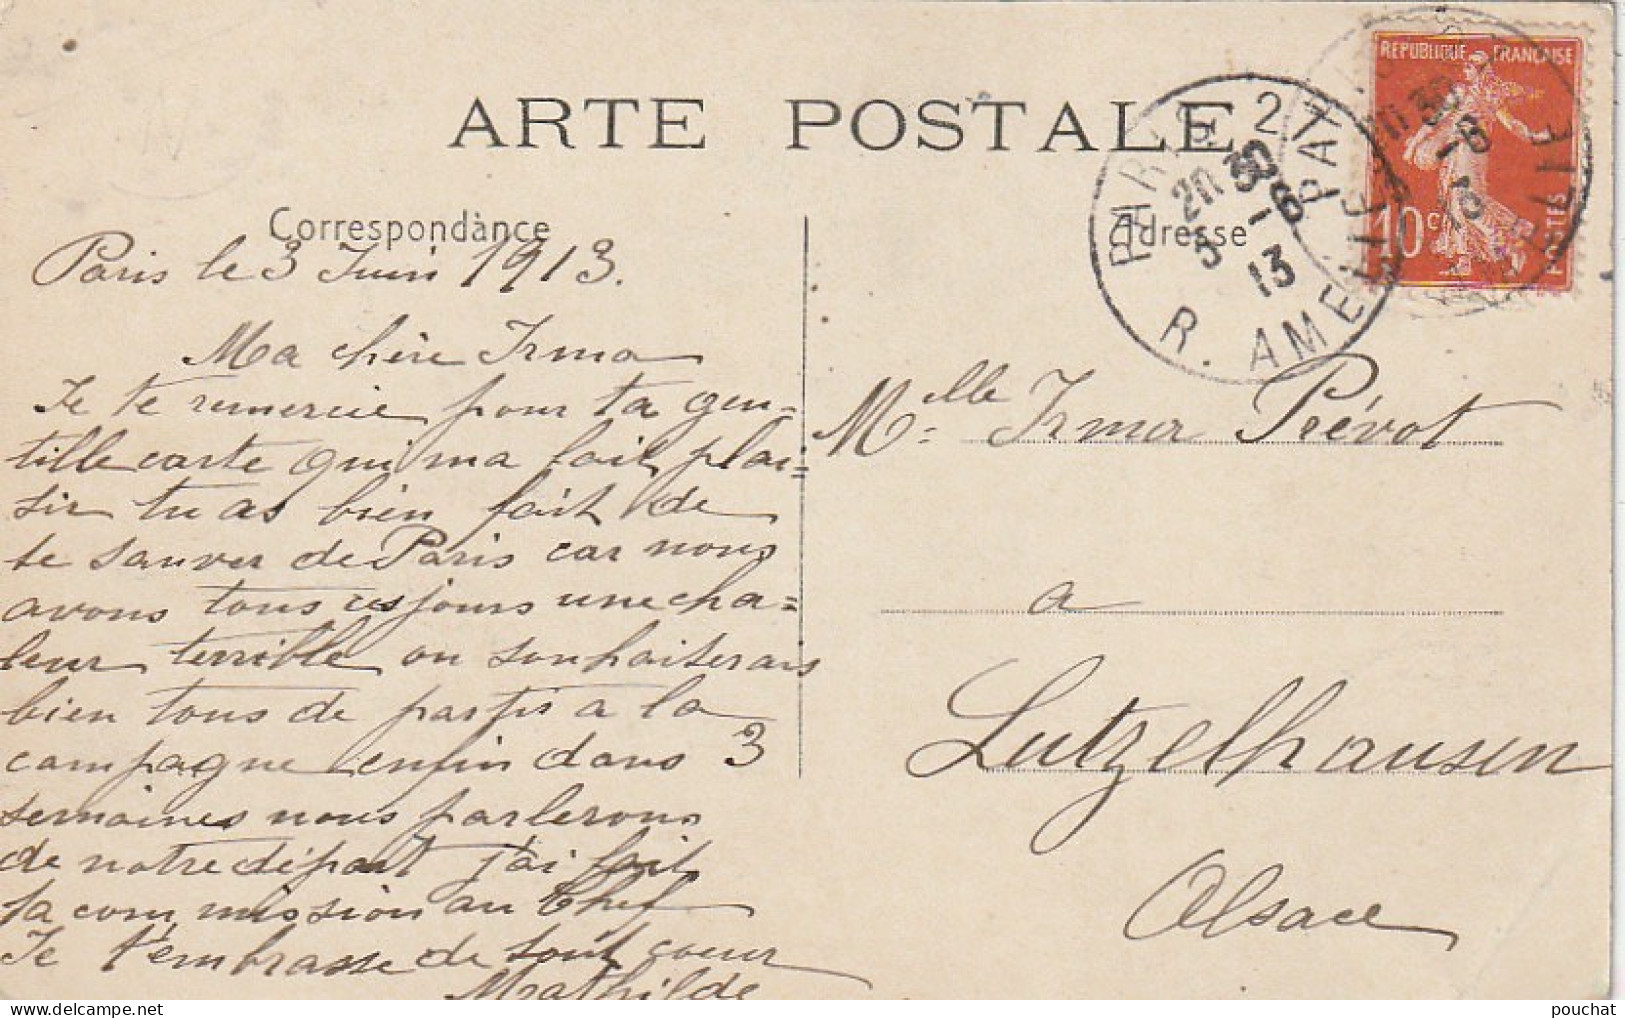 ARTE POSTALE
Correspondance
Adresse
REPUBLIQUE FRANCAISE
10 c
POSTES
PARIS 27
20 30
3 - 6
13
R. AMELIE
Paris le 3 Juin 1913.
Ma chère Irma
Je te remercie pour ta gen-
tille carte qui m'a fait plai=
sir tu as bien fait de
te sauver de Paris car nous
avons tous ces jours une cha=
leur terrible on souhaiterais
bien tous de partir a la
campagne enfin dans 3
semaines nous parlerons
de notre départ j'ai fait
ta commission au Chef
Je t'embrasse de tout coeur
Mathilde
Melle Irma Prévot
a
Lutzelhausen
Alsace
pouchat